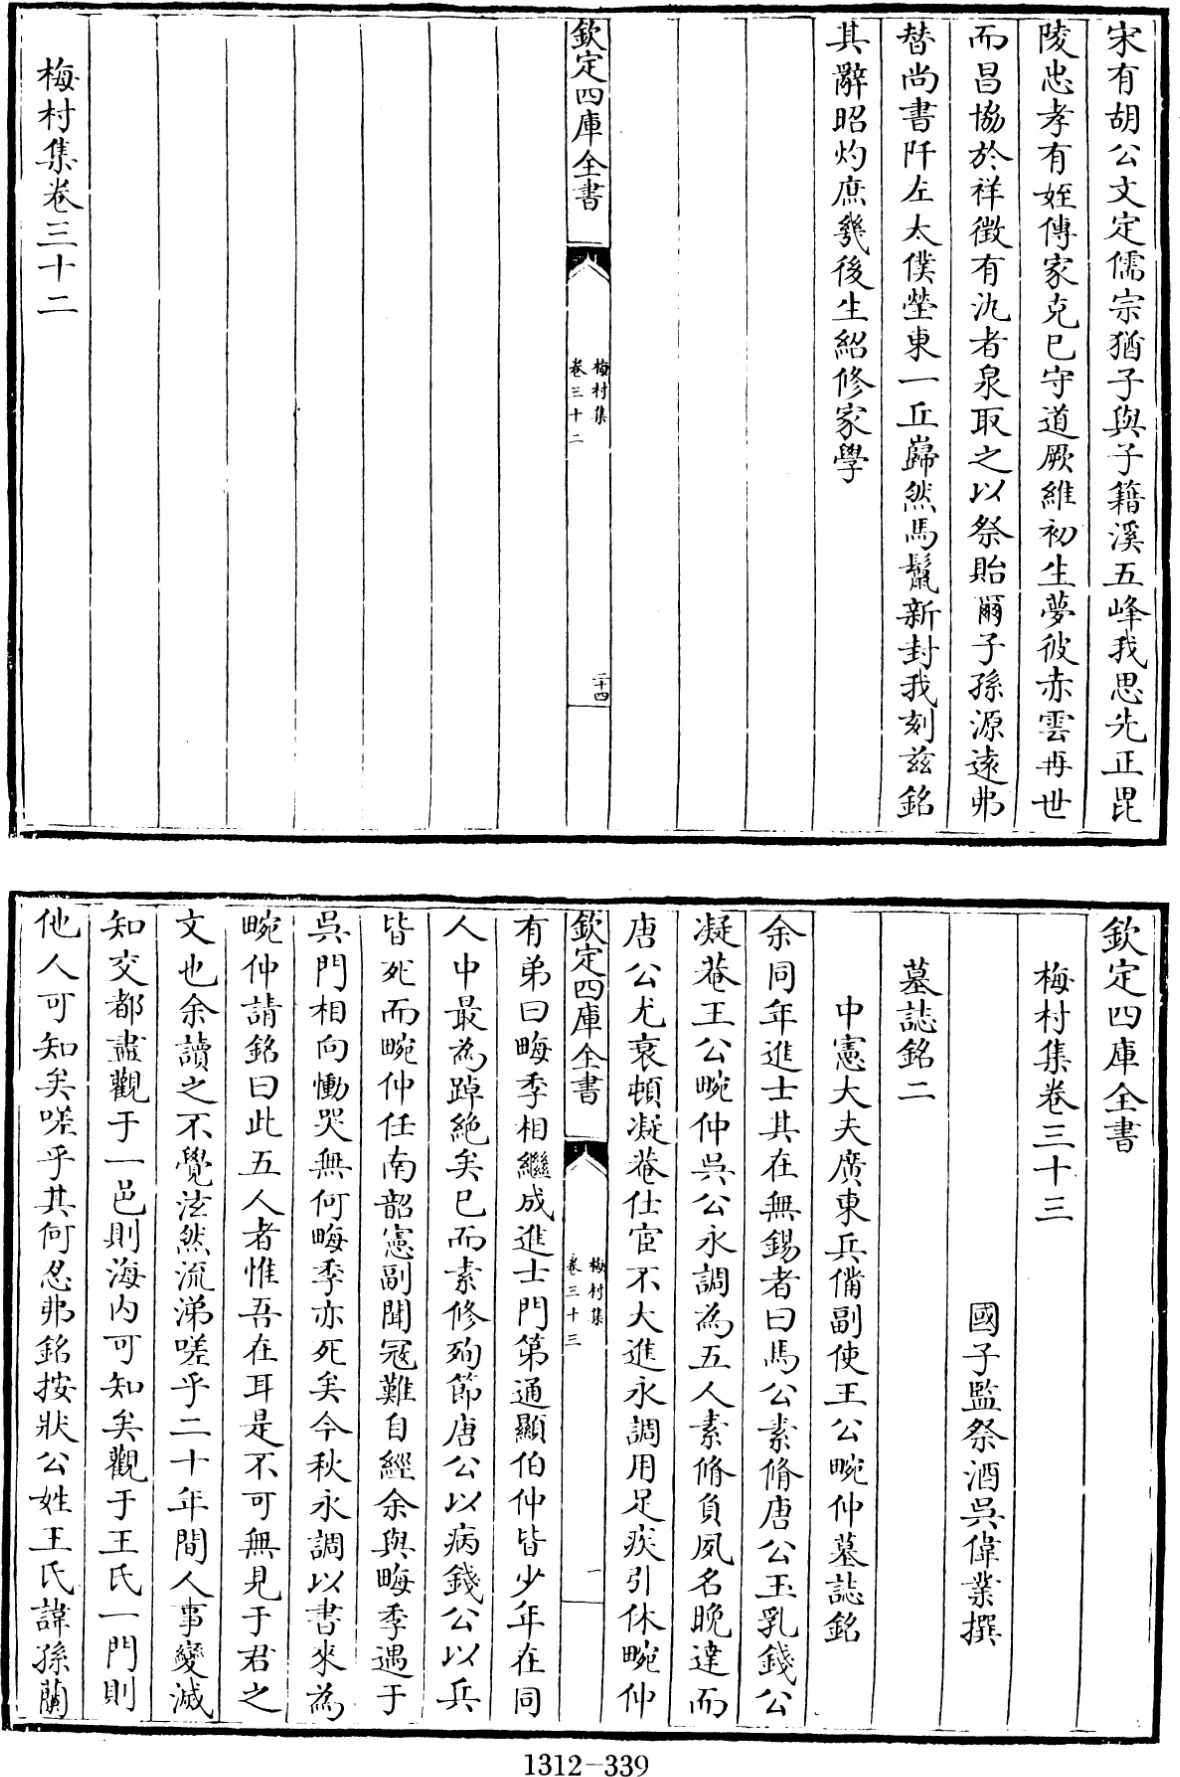 宋有胡公文定儒宗猶子與子籍溪五峰我思先正毘
陵忠孝有姪傳家克已守道厥維初生夢彼赤雲再世
而昌協於祥徵有氿者泉取之以祭貽爾子孫源遠弗
替尚書阡左太僕塋東一丘巋然馬鬛新封我刻茲銘
其辭昭灼庶幾後生紹修家學
欽定四庫全書
梅村集
卷三十二
二十四
梅村集卷三十二
欽定四庫全書
梅村集卷三十三
國子監祭酒吳偉業撰
墓誌銘二
中憲大夫廣東兵備副使王公畹仲墓誌銘
余同年進士其在無錫者曰馬公素脩唐公玉乳錢公
凝菴王公畹仲吳公永調為五人素脩負夙名晚達而
唐公尤衰頓凝菴仕宦不大進永調用足疾引休畹仲
欽定四庫全書
梅村集
卷三十三
一
有弟曰畮季相繼成進士門第通顯伯仲皆少年在同
人中最為踔絶矣已而素修殉節唐公以病錢公以兵
皆死而畹仲任南韶憲副聞冦難自經余與畮季遇于
吳門相向慟哭無何畮季亦死矣今秋永調以書來為
畹仲請銘曰此五人者惟吾在耳是不可無見于君之
文也余讀之不覺泫然流涕嗟乎二十年間人事變滅
知交都盡觀于一邑則海内可知矣觀于王氏一門則
他人可知矣嗟乎其何忍弗銘按狀公姓王氏諱孫蘭
1312-339